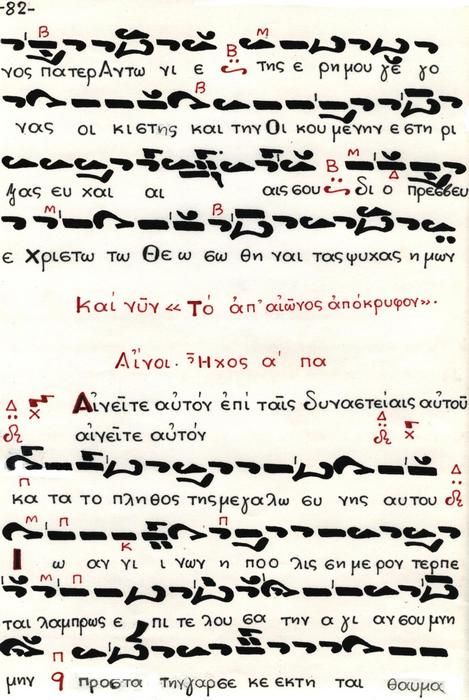 -82-
νος πατερ Αντω νι ε της ε ρημου γε γο
νας οι κιστης και την Οι κου μενην ε στη ρι
ξας ευ χαι αι αις σου δι ο πρεσβευ
ε Χριστω τω Θε ω σω θη ναι τας ψυχας η μων
Καί νῦν «Τό ἀπ' αἰῶνος ἀπόκρυφον».
Αἶνοι. Ἦχος α' πα
Αἰνεῖτε αὐτόν ἐπί ταῖς δυναστείαις αὐτοῦ
αἰνεῖτε αὐτόν
κα τα το πληθος της μεγαλω συ νης αυτου
Ι ω αν νι ι νων η πο ο λις ση με ρον τερπε
ται λαμπρως ε πι τε λου σα την α γι αν σου μνη
μην προστα την γαρ σε κε εκτη ται θαυμα